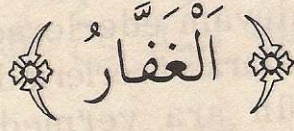 اَلْغَفَّارُ